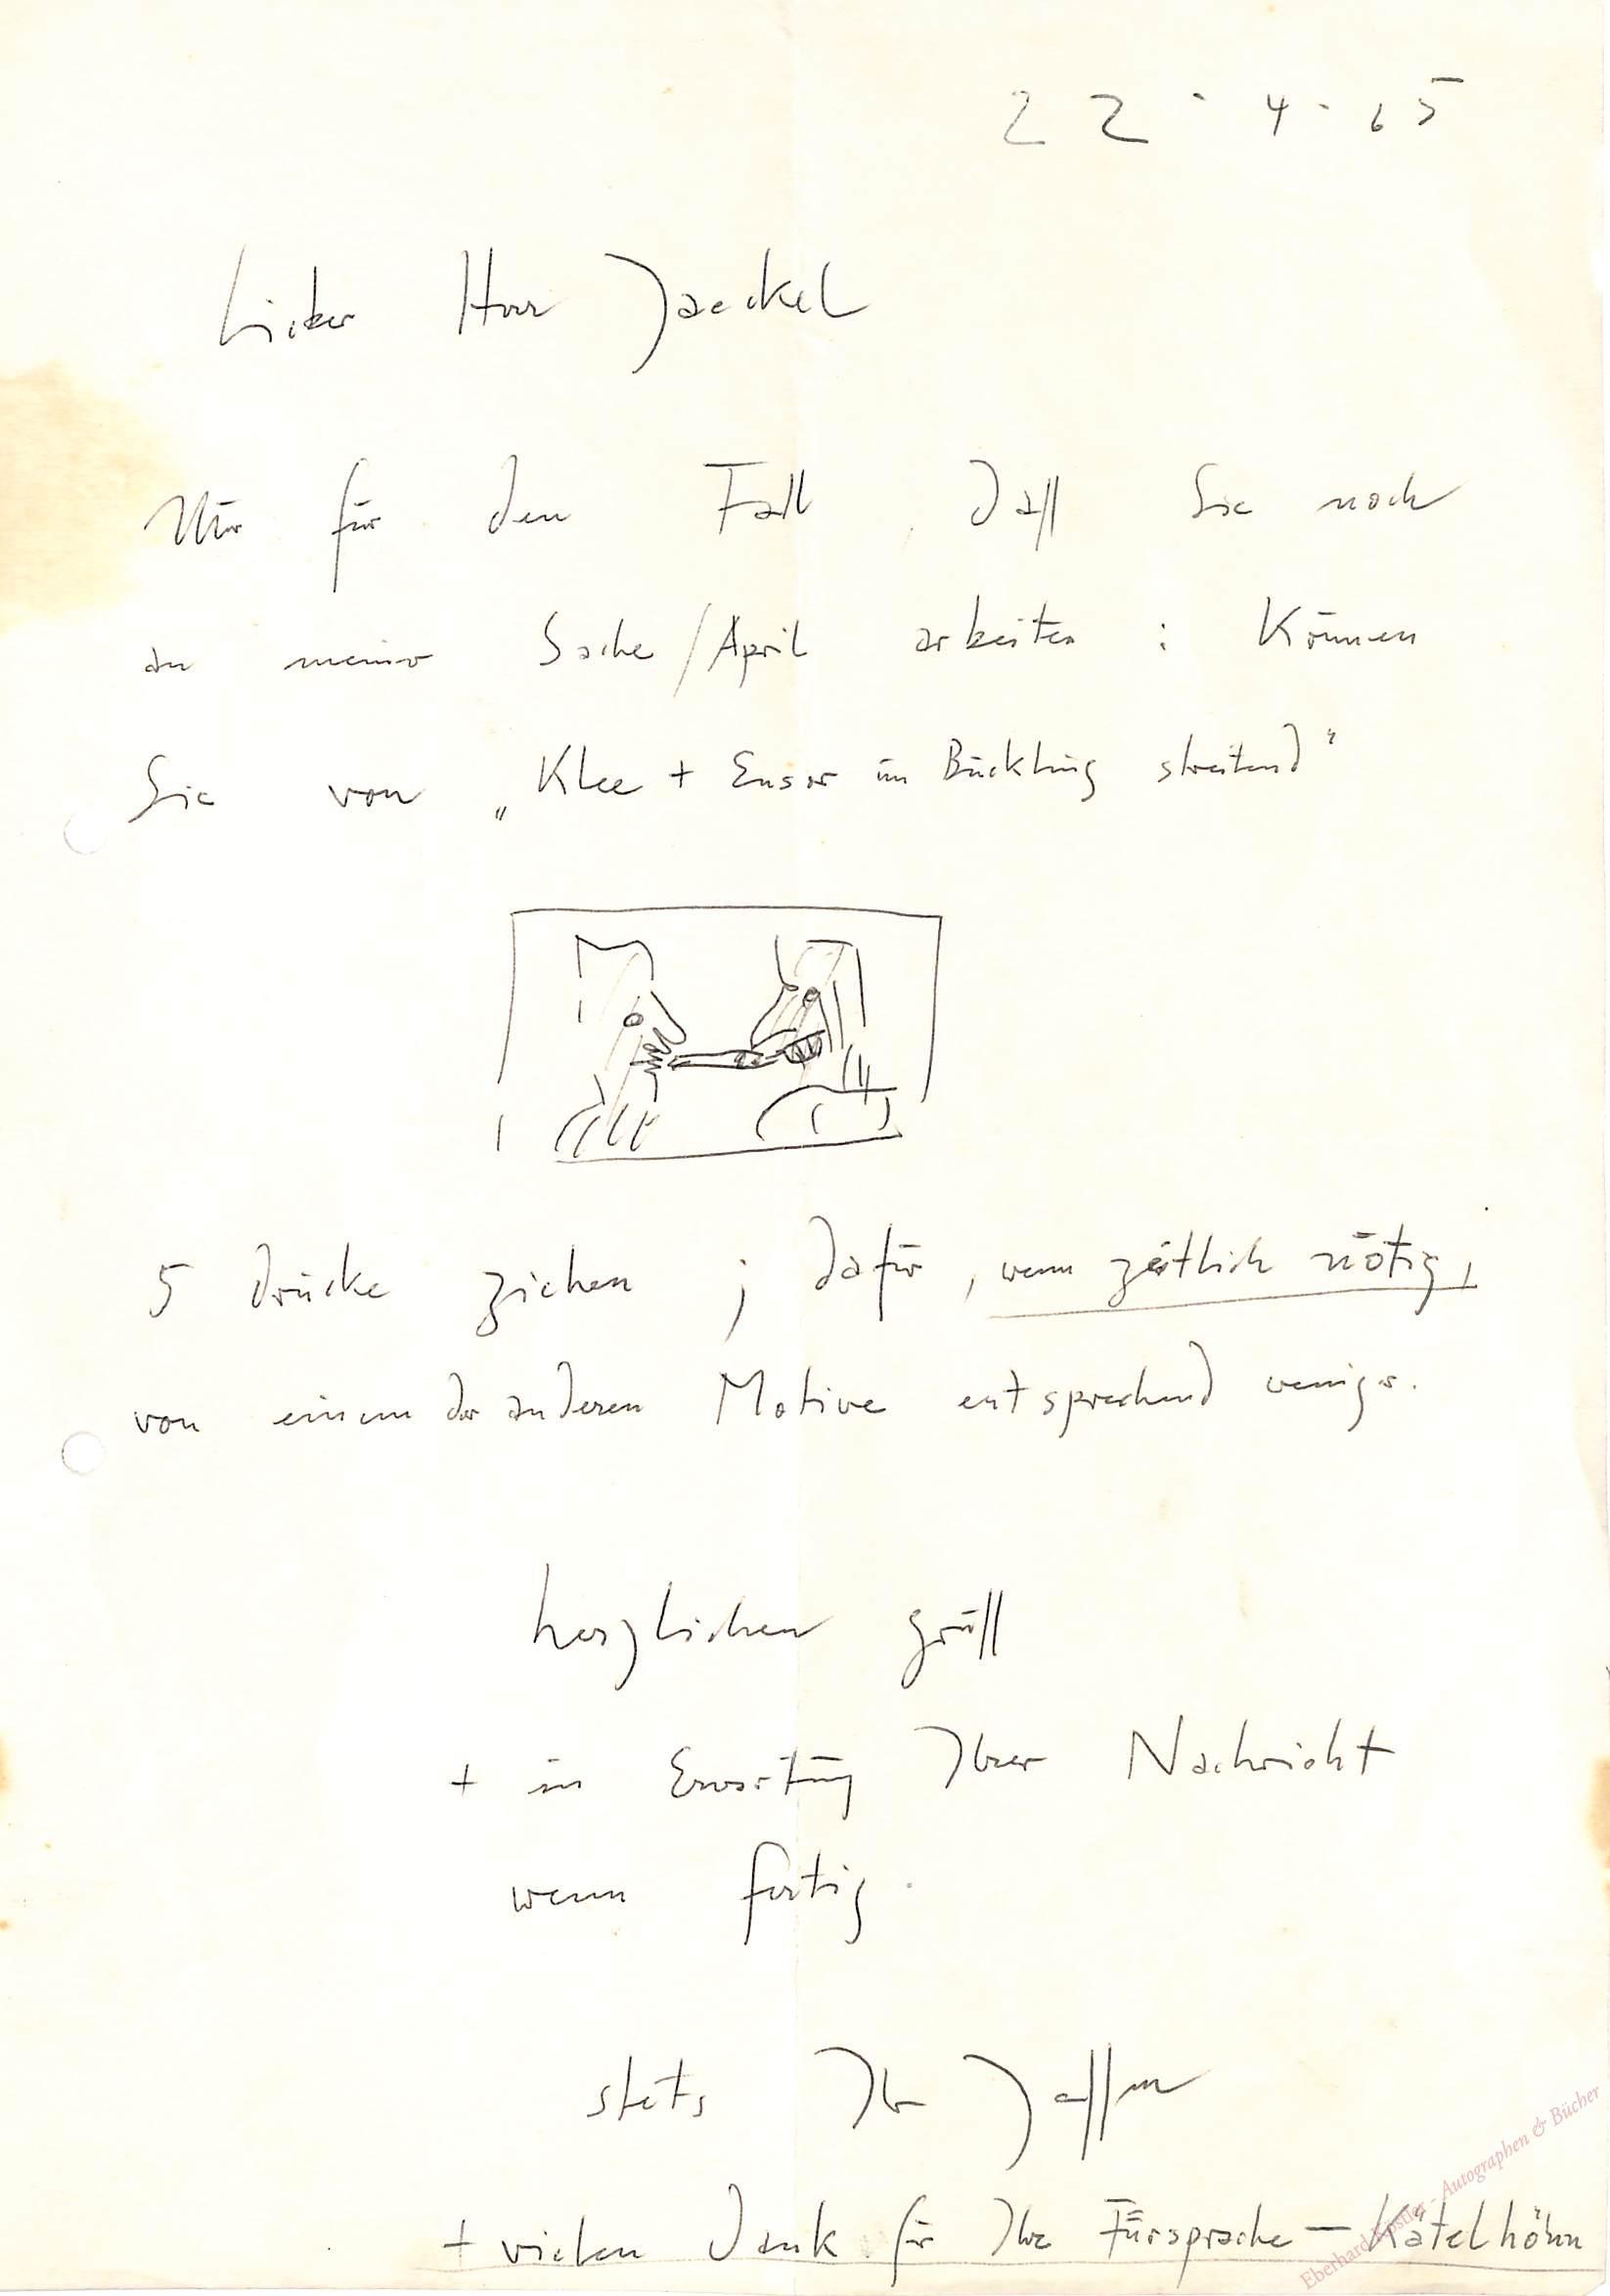 22.4.65
Lieber Herr Jaeckel
Nur für den Fall, daß Sie noch
an meiner Sache/April arbeiten : Können
Sie von „Klee + Ensor um Bückling streitend“
5 drücke ziehen ; dafür, wenn zeitlich nötig,
von einem der anderen Motive entsprechend weniger.
herzlichen gruß
+ in Erwartung Ihrer Nachricht
wenn fertig.
stets Ihr Janssen
+ vielen Dank für Ihre Fürsprache — Kätelhöhn
Eberhard Köstler - Autographen & Bücher